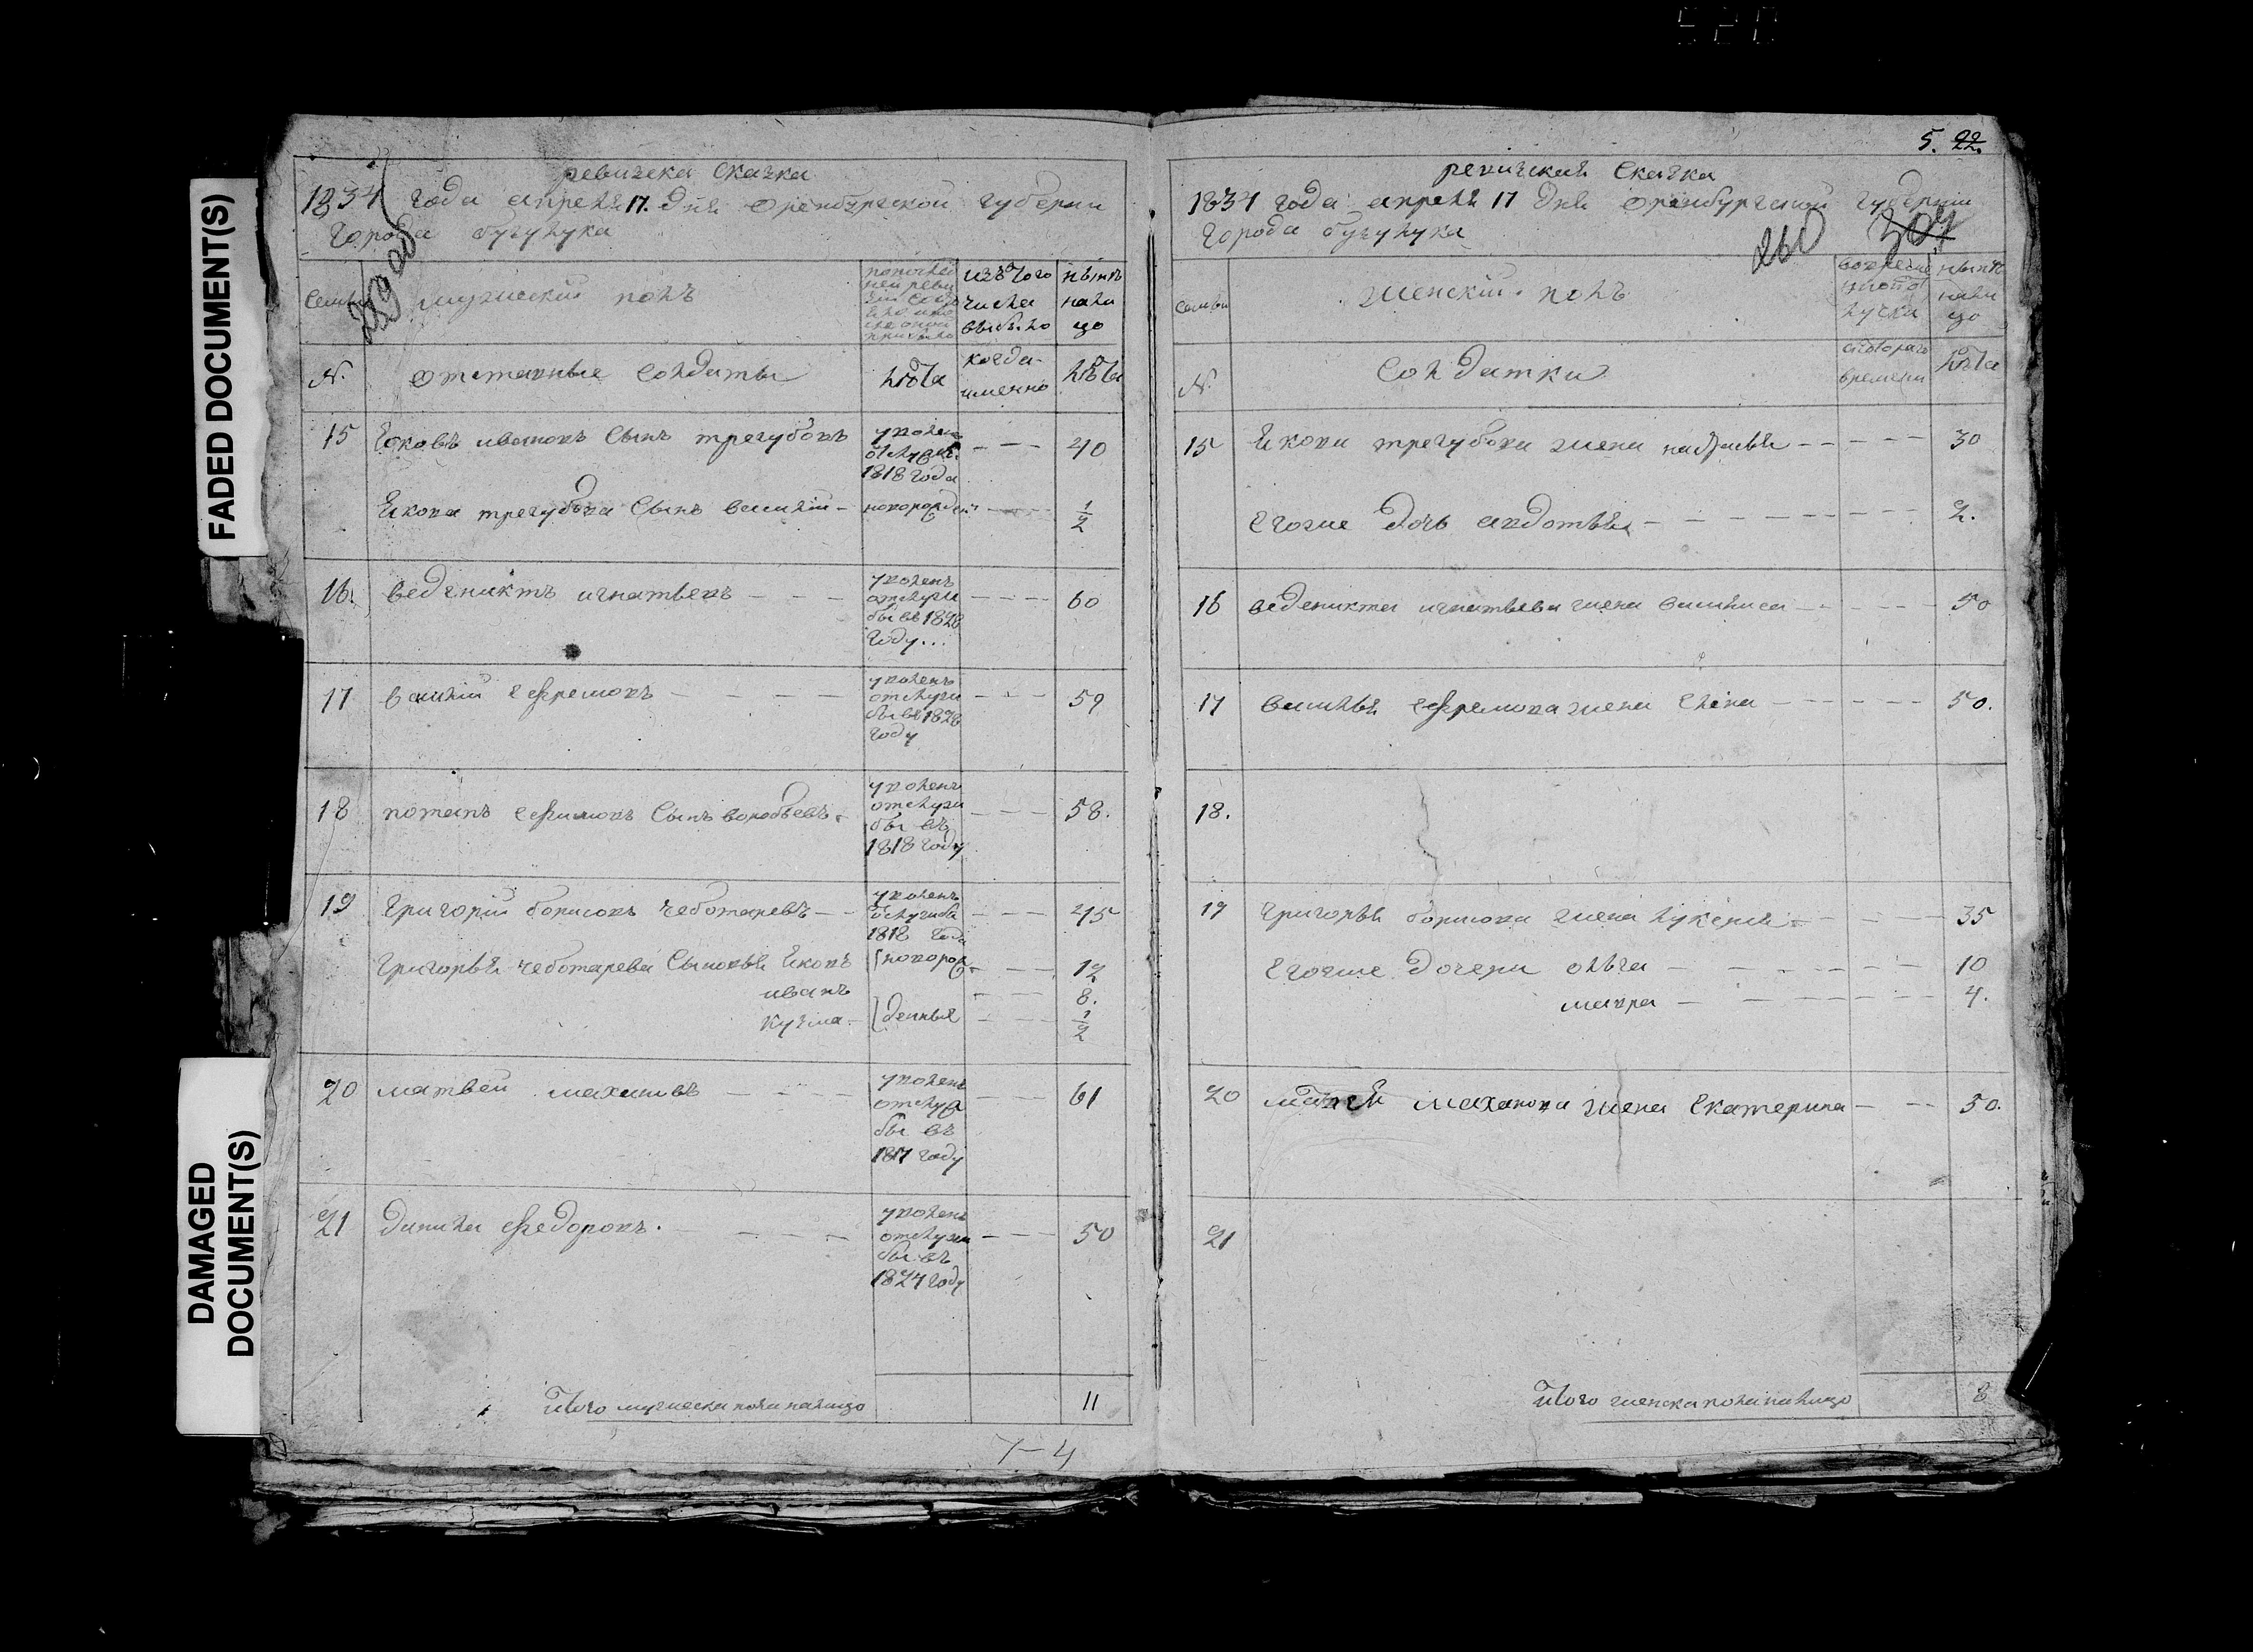 520
FADED DOCUMENT(S)
DAMAGED
DOCUMENT(S)
ревизска Сказка
1834 года апреля 17. Дня Оренбургской губерни
города бузулука
239
Семьи
мужиский полъ
изътого
числа
выбыло
нынѣ
нали
цо
№.
Отставные Солдаты
лѣта
когда
именно
лѣта
15 Яковъ ивановъ Сынъ трегубовъ
уволенъ
1818 года
— — — 40
Якова трегубова Сынъ василiй — новорожден — — 1/2
16. веденихтъ игнатьевъ — — —
уволенъ
отслужи
бы въ 1828
году...
— — — 60
17 василiй ефремовъ — — — —
уволенъ
отслужи
бы въ 1828
году
— — — 59
18 потапъ ефимовъ Сынъ воробьевъ.
уволенъ
отслужи
бы въ
1818 году
— — — 58.
19 Григорiй борисовъ чеботаревъ — —
уволенъ
1818 года
— — — 45
Григорья чеботарева Сыновья Яковъ новорож — — — 12
иванъ — — 8.
кузма — денныя — — 1/2
20 матвеи махановъ — — — —
уволенъ
отслуж
бы въ
1817 году
— — — 61
21 данила федоровъ. — — — —
уволенъ
отслужи
бы въ
1824 году
— — — 50
Итого мужиска пола налицо 11
7-4
5. 22.
ревизская Сказка
1834 года апреля 17 Дня Оренбургской губернiи
города бузулука
260 307
Семьи
женскiй полъ
нынѣ
нали
цо
№.
Солдатки
времени
лѣта
15 Якова трегубова жена настасья — — — — — 30
Егоже Дочь авдотья — — — — — — — 2.
16 веденихта игнатьева жена василиса — — — — — 50
17 василья ефремова жена Елена — — — — — 50.
18.
19 Григорья борисова жена лукерья — — — — 35
Егоже Дочери ольга — — — — — — — 10
мавра — — — — — — 4.
20 матвея маханова жена Екатерина — — — 50.
21
Итого женска пола налицо 8